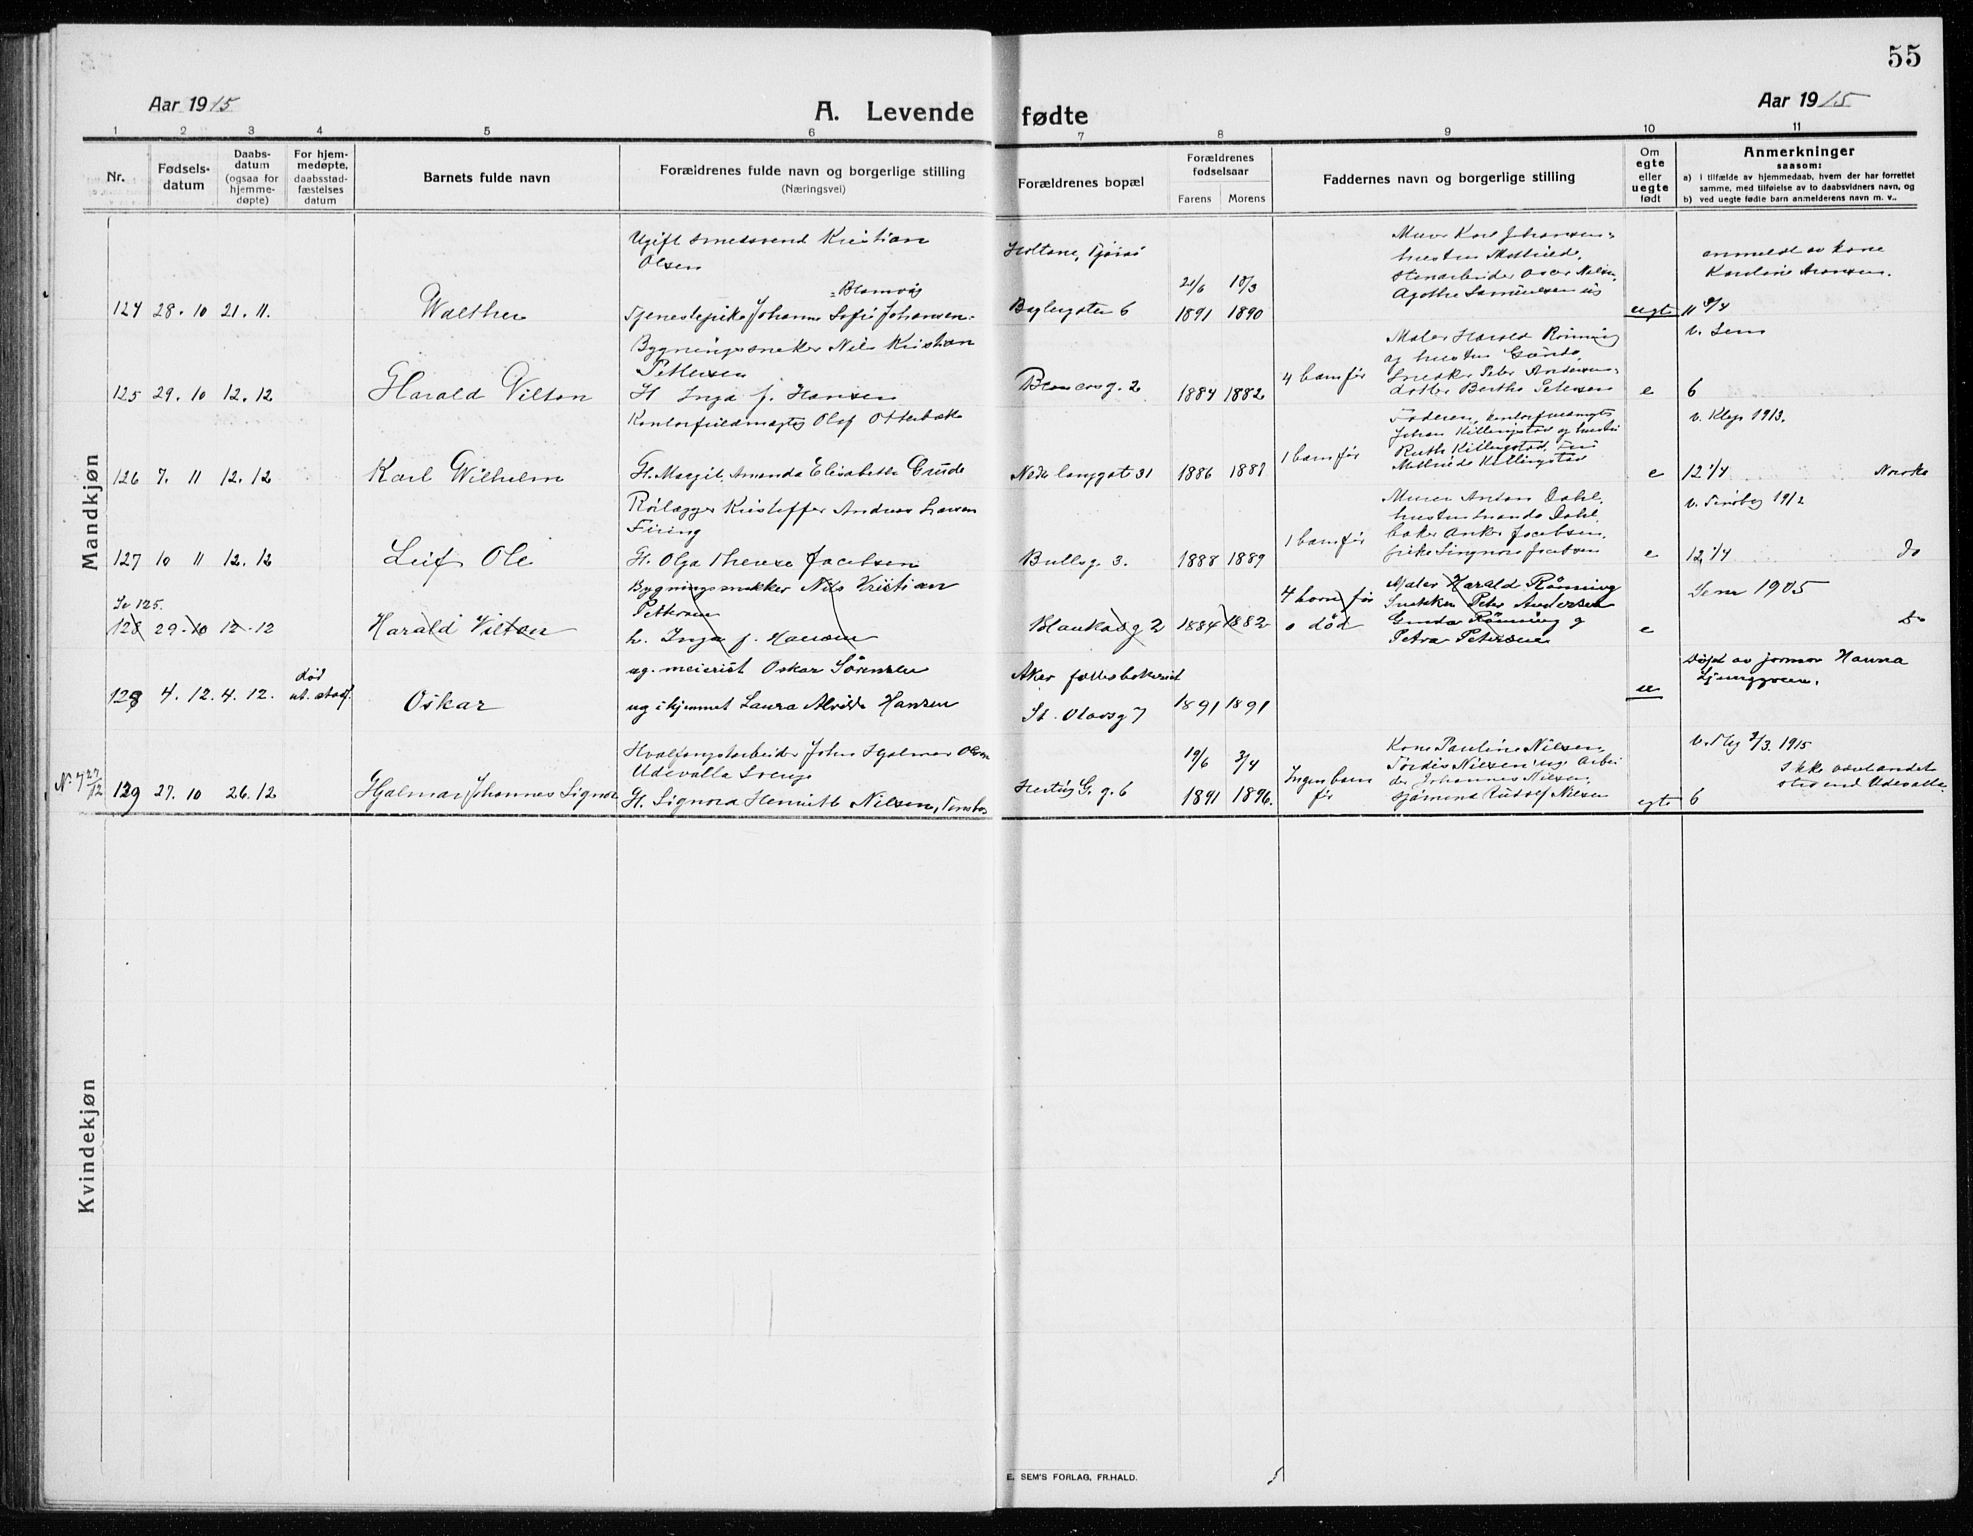 55
Aar 1915
A. Levende fødte
Aar 1915
1 2 3 4 5 6 7 8 9 10 11
Nr.
Fødsels-
datum
Daabs-
datum
(ogsaa for
hjemme-
døpte)
For hjem-
medøpte,
daabsstad-
fæstelses
datum
Barnets fulde navn
Forældrenes fulde navn og borgerlige stilling
(Næringsvei)
Forældrenes bopæl
Forældrenes
fødselsaar
Farens Morens
Faddernes navn og borgerlige stilling
Om
egte
eller
uegte
født
Anmerkninger
saasom:
a) I tilfælde av hjemmedaab, hvem der har forrettet
samme, med tilføielse av to daabsvidners navn, og
b) ved uegte fødte barn anmelderens navn m. v..
Mandkjøn
Ugift smedsvend Kristian
Olsen
Holtane, Tjømø
21/6 18/3
Murer Karl Johansen,
hustru Mathilde,
stenarbeider Oscar Nilsen,
Agathe Samuelsen ug
anmeldt av kone
Karoline Aronsen.
124 28. 10 21. 11. Walther
Tjenestepike Johanne Sofie Johansen
Baglergaten 6
1891 1890
uegte
11 9/4
Bygningssneker Nils Kristian
Pettersen
Maler Harald Rönning
og hustru Gunda,
Snedker Peter Andersen,
datter Berthe Petersen
v. Sem
125 29. 10 12. 12 Harald Vilton
H. Inga f. Hansen
Blancasg. 2
1884 1882
4 barn før
e
6
Kontorfuldmægtig Olaf Otterbæk
Faderen, kontorfuldmægtig
Johan Killingstad og hustru
Ruth Killingstad, frøken
Mathilde Killingstad
v. Klep 1913.
126 7. 11 12. 12 Karl Wilhelm
H. Margit Amanda Elisabeth Grude
Nedre langgate 31
1886 1887
1 barn før
e
12 1/4 Norske
Rörlægger Kristoffer Andreas Larsen
Firing
Murer Anton Dahl,
hustru Dahl,
baker Anker Jacobsen,
frøken Jacobsen
v. Tønsberg 1912
127 10 11 12. 12 Leif Ole
H. Olga Therese Jacobsen
Bullsg 3.
1888 1889
1 barn før
e
12 1/4 Do
Se 125.
128 29. 10 12. 12 Harald Vilton
Bygningssnekker Nils Kristian
Pettersen
h. Inga f. Hansen
Blankasg 2
1884 1882
4 barn før
0 død
Maler Harald Rønning
Snekker Peter Andersen
Gunda Rønning og
Petra Petersen
e
Sem 1905
Do
128 4. 12. 4. 12.
død
Oskar
ug. meierist Oskar Sörensen
ug i hjemmet Laura Alvilde Hansen
Aker fællesbakeriet
St. Olavsg 7
1891 1891
ue
Døpt av jormor Hanna
Ljunggreen.
Nr. 7 27/12
129 27. 10 26. 12 Hjalmar Johannes Signor
Hvalfangstarbeider John Hjalmar Olsen
Udevalla Sverige
H. Signora Henriette Nilsen, Tønsberg
Hertug G. g. 6
19/6 3/4
1891 1896.
Ingen barn
før
Kone Pauline Nilsen,
Tordis Nilsen ug. Arbei
der Johannes Nilsen,
Sjömand Rudolf Nilsen
egte
6
3/3. 1915
Ikke
sted end Udevalla
Kvindekjøn
E. SEM'S FORLAG, FR.HALD.
5